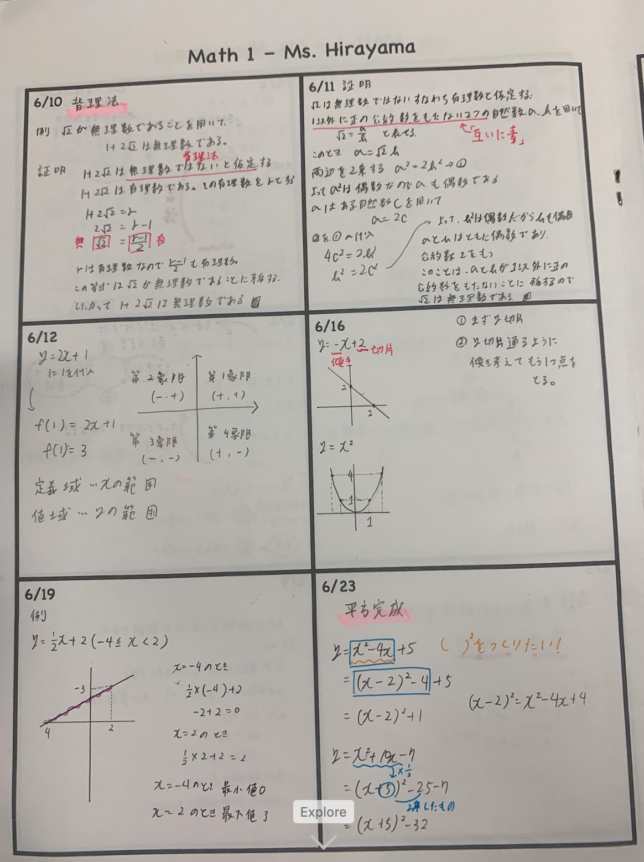 Math 1 - Ms. Hirayama
6/10 背理法
例 √2が無理数であることを用いて、
1+2√2は無理数である。
背理法
証明 1+2√2は無理数ではないと仮定する
1+2√2は有理数である。この有理数をrとおく
1+2√2=r
2√2=r-1
無 √2 = r-1/2 有
rは有理数なのでr-1/2も有理数。
この等式は√2が無理数であることに矛盾する。
したがって1+2√2は無理数である
6/11 証明
√2は無理数ではないすなわち有理数と仮定する。
1以外に正の公約数をもたない2つの自然数a、bを用いて
√2=a/b と表せる
「互いに素」
このとき a=√2b
両辺を2乗する a²=2b²→①
よってa²は偶数なのでaも偶数である
aはある自然数Cを用いて
a=2C
②を①へ代入
4C²=2b²
b²=2C²
よって、b²は偶数だからbも偶数
aとbはともに偶数であり、
公約数2をもつ
このことは、aとbが1以外に正の
公約数をもたないことに矛盾するので
√2は無理数である
6/12
y=2x+1
に1を代入
f(1)=2x+1
f(1)=3
第2象限
(-.+)
第1象限
(+.+)
第3象限
(-,-)
第4象限
(+,-)
定義域…xの範囲
値域…yの範囲
6/16
y=-x+2
傾き
切片
2
2
① まずy切片
② y切片通るように
傾き考えてもう1つ点を
とる。
y=x²
4
1
1
6/19
例
y=½x+2(-4≤x<2)
-3
4
2
x=-4のとき
½×(-4)+2
-2+2=0
x=2のとき
½×2+2=2
x=-4のとき 最小値0
x=2のとき 最大値3
6/23
平方完成
y=x²-4x+5
( )²をつくりたい!
=(x-2)²-4+5
=(x-2)²+1
(x-2)²=x²-4x+4
y=x²+10x-7
×½
=(x+5)²-25-7
2乗したもの
=(x+5)²-32
Explore